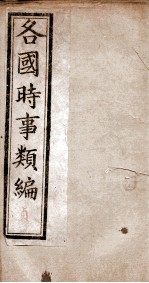 各國時事類編